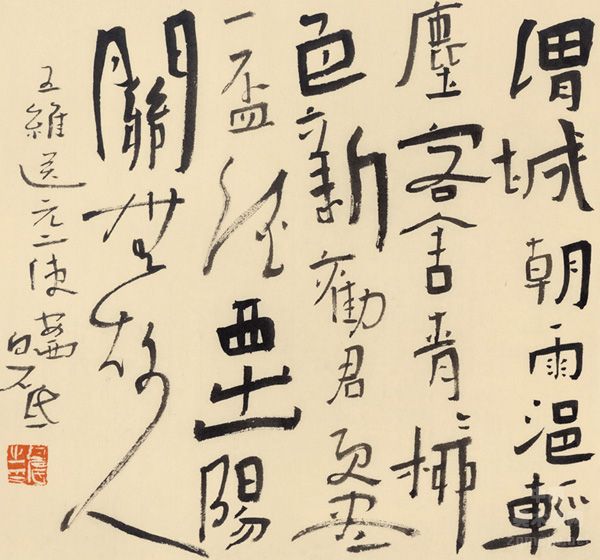 渭城朝雨浥輕
塵客舍青〻柳
色新勸君更盡
一盃酒西出陽
關無故人
王維送元二使安西
白砥